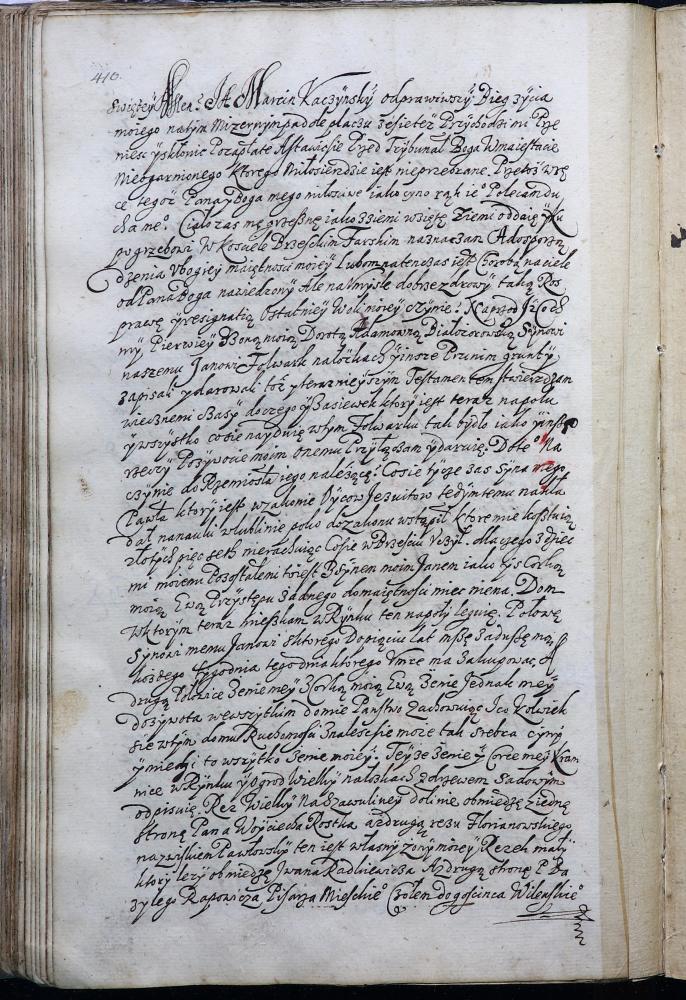 410.
Swiętey Amen. Ja Marcin Kaczynsky odprawiwszy Bieg zycia
moiego natym Mizernym padole płaczu zesietez Przychodzi mi Prze
niesc ysklonic Pozapłate Astawicsie Przed Trybunal Boga Wmaiestacie
Nieogarnionego ktorego Miłosierdzie iest nieprzebrane. Przetoż wrę
ce tegoz Pana Boga mego miłosciwe iako cyno rąk ieº Polecam du
cha meº. Ciało zas mę grzeszne iako zziemi wzięte Ziemi oddaię yku
pogrzebowi WKosciele Brzeskim Farskim naznaczam Adosporzą
dzenia vbogiey maiętnosci moiey Lubom natenczas iest Chorobą naciele
od Pana Boga nawiedzony Ale naUmysle dobrze zdrowy taką Roz
prawę yresignatią Ostatniey Woli moiey czynie. Naprzod Jż Coch
my Pierwiey zZoną moią Dorotą Adamowną Białozorowską Synowi
naszemu Janowi Folwark nałozkach yinsze Przynim grunty
zapisali ydarowali toż yterazneiyszym Testamentem stwierdzam
wiecznemi czasy doczego yZasiewek ktory iest teraz napolu
ywszystko cosie nayduię wtym Folwarku tak bydło iako yinsze
rzeczy Pozywocie moim onemu Przyłączam ydaruię. Dotº Na
czynie do Rzemiosła iego należące. Cosie tycze zas Syna mego
Pawła ktory iest wzakonie Oycow Jezuitow tedym temu nakła
dał nanauki wlublinie poko dozakonu wstąpił ktore mie kosztuią
złotych pięc seth nierachuiąc Cosie wBrzesciu Uczył. dlaczego zdziec
mi moiemi Pozostałemi toiest zSynem moim Janem iako yis Corką
moią Ewą Przystępu żadnego domaiętnosci miec niema. Dom
wktorym teraz mieszkam wRynku ten napoły leguię. Połowę
Synowi memu Janowi zktorego Dopięciu lat mszę zaduszę mą
każdego tygodnia tego dnia ktorego Vmrę ma zakupowac A
drugą Połowice żenie mey zCorką moią Ewą Żenie Jednak mey
dożywota wewszytkim domie Panstwo zachowuię Jco kolwiek
sie wtym domu Ruchomosci Znalescsie może tak srebra cyny
ymiedzi to wszytko żenie moiey. Teyże żenie y Corce mey Kram
nice wRynku yOgrod Wielky nałozkach zdrzewem Sadowym
odpisuię. Rez Wielky NaSzawuliney dolinie obmiedzę ziedną
stronę Pana Woyciecha Rostka azdrugą rezu Florianowskiego
nazwiskiem Pawłowsky ten iest własny żony moiey Rezek mały
ktory leży obmiedzę Jwana Radkiewicza Azdrugą stronę P. Ba
zylego Kapowicza Pisarza Mieskieº Czołem dogoscinca Wilenskieº